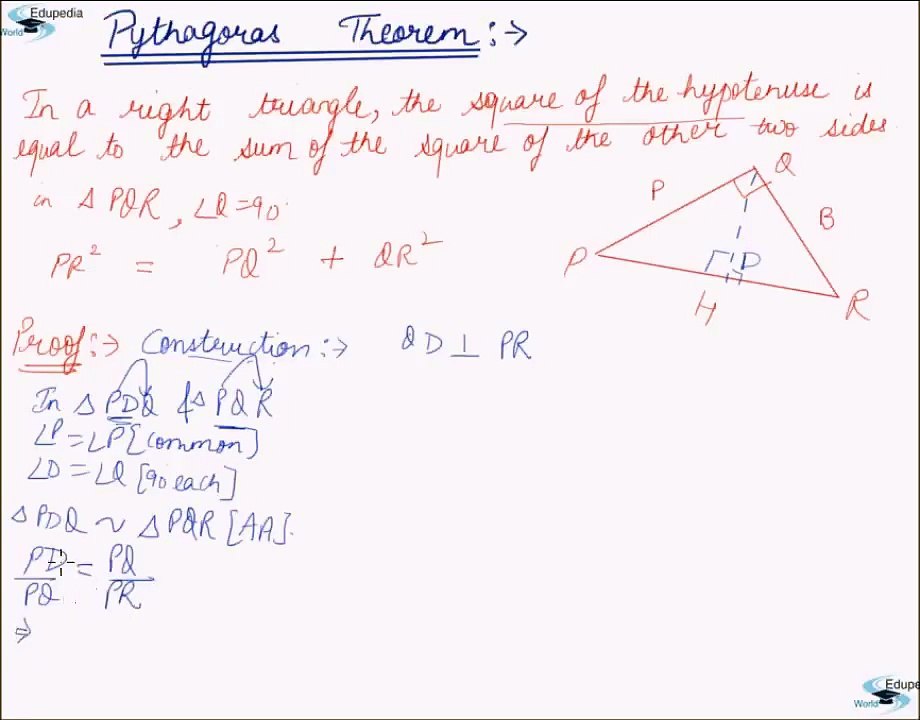 Edupedia
World
Pythagoras Theorem :→
In a right triangle, the square of the hypotenuse is
equal to the sum of the square of the other two sides.
in Δ PQR, ∠Q = 90
PR² = PQ² + QR²
P
Q
B
P
D
H
R
Proof :→ Construction :→ QD ⊥ PR
In Δ PDQ & Δ PQR
∠P = ∠P [common]
∠D = ∠Q [90 each]
Δ PDQ ~ Δ PQR [AA].
PD/PQ = PQ/PR
⇒
Edupe
World